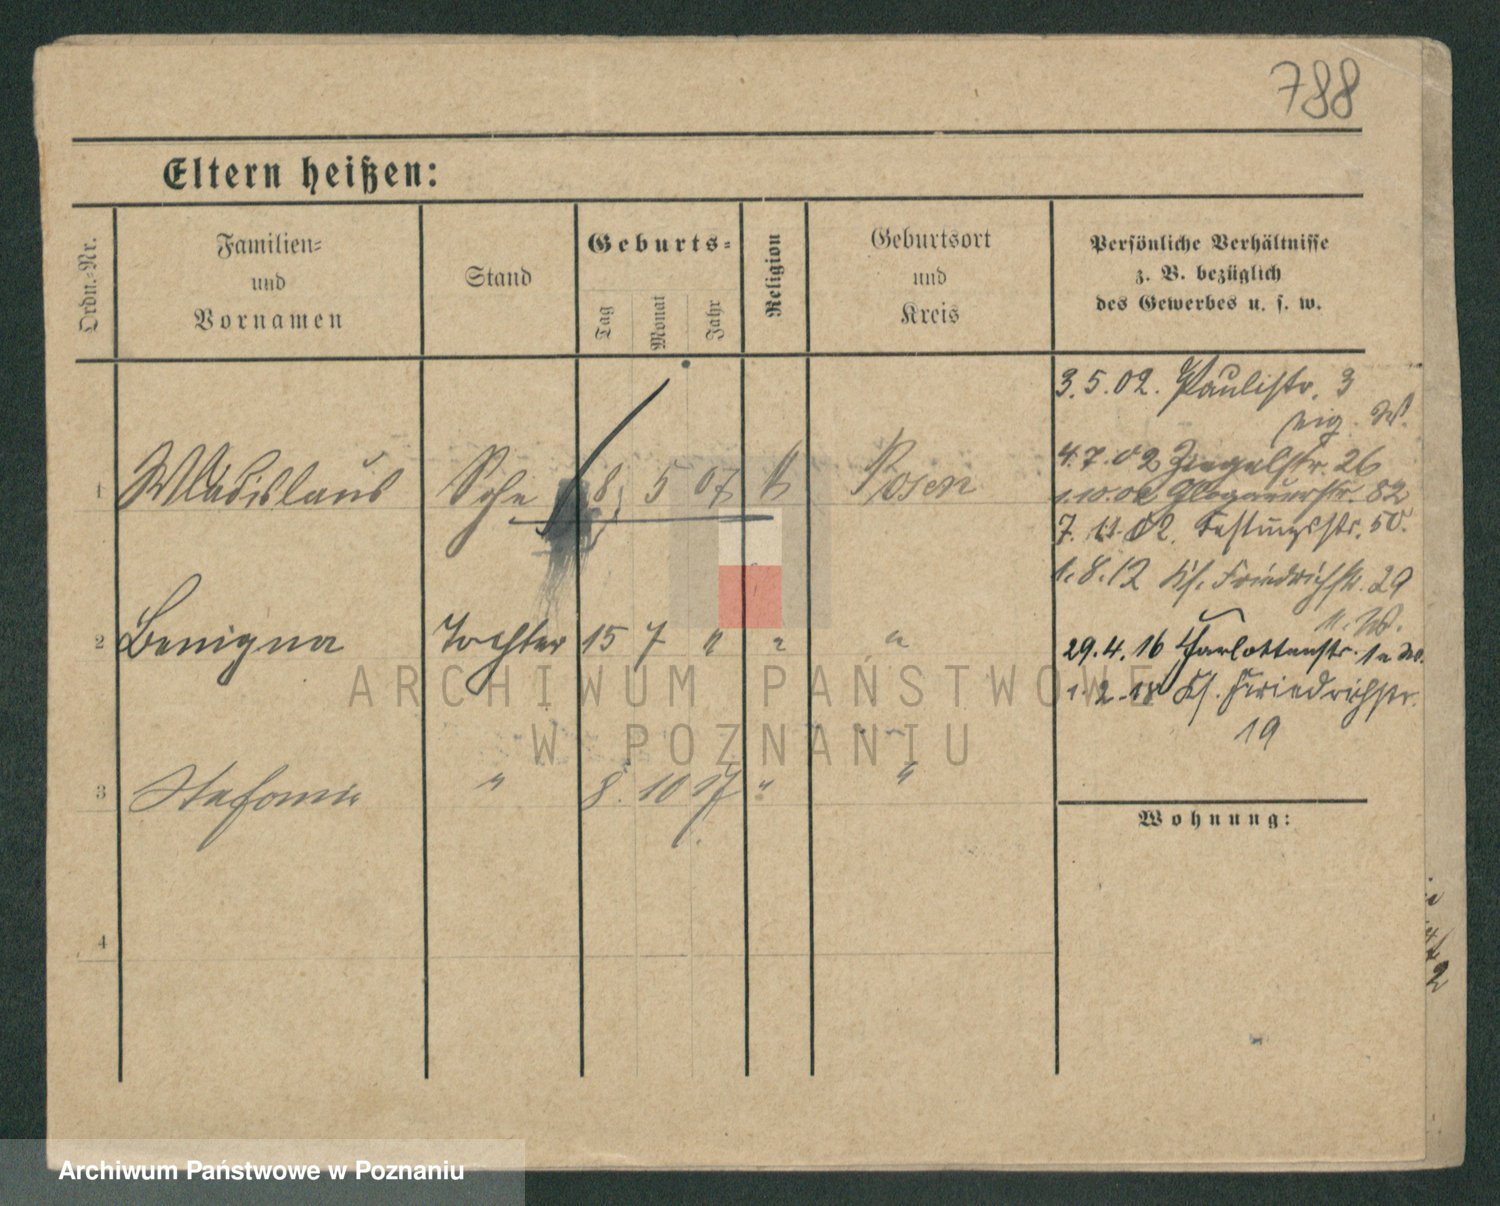 788
Eltern heißen:
Ordn.-Nr.
Familien-
und
Vornamen
Stand
Geburts-
Tag
Monat
Jahr
Religion
Geburtsort
und
Kreis
Persönliche Verhältnisse
z. B. bezüglich
des Gewerbes u. s. w.
3.5.02. Paulistr. 3
eig. W.
4.7.02 Ziegelstr. 26
1.10.02 Glogauerstr. 82
7. 11. 02. Festungsstr. 50.
1.8.12 Ks. Friedrichstr. 29
1 Wladislaus Sohn 8 5 07 k Posen
2 Benigna Tochter 15 7 " " "
29.4.16 Harlottenstr. 1a W.
1.2.18 Ks. Friedrichstr.
19
3 Stefanie " 8. 10 17 " "
Wohnung:
4
ARCHIWUM PAŃSTWOWE
W POZNANIU
Archiwum Państwowe w Poznaniu